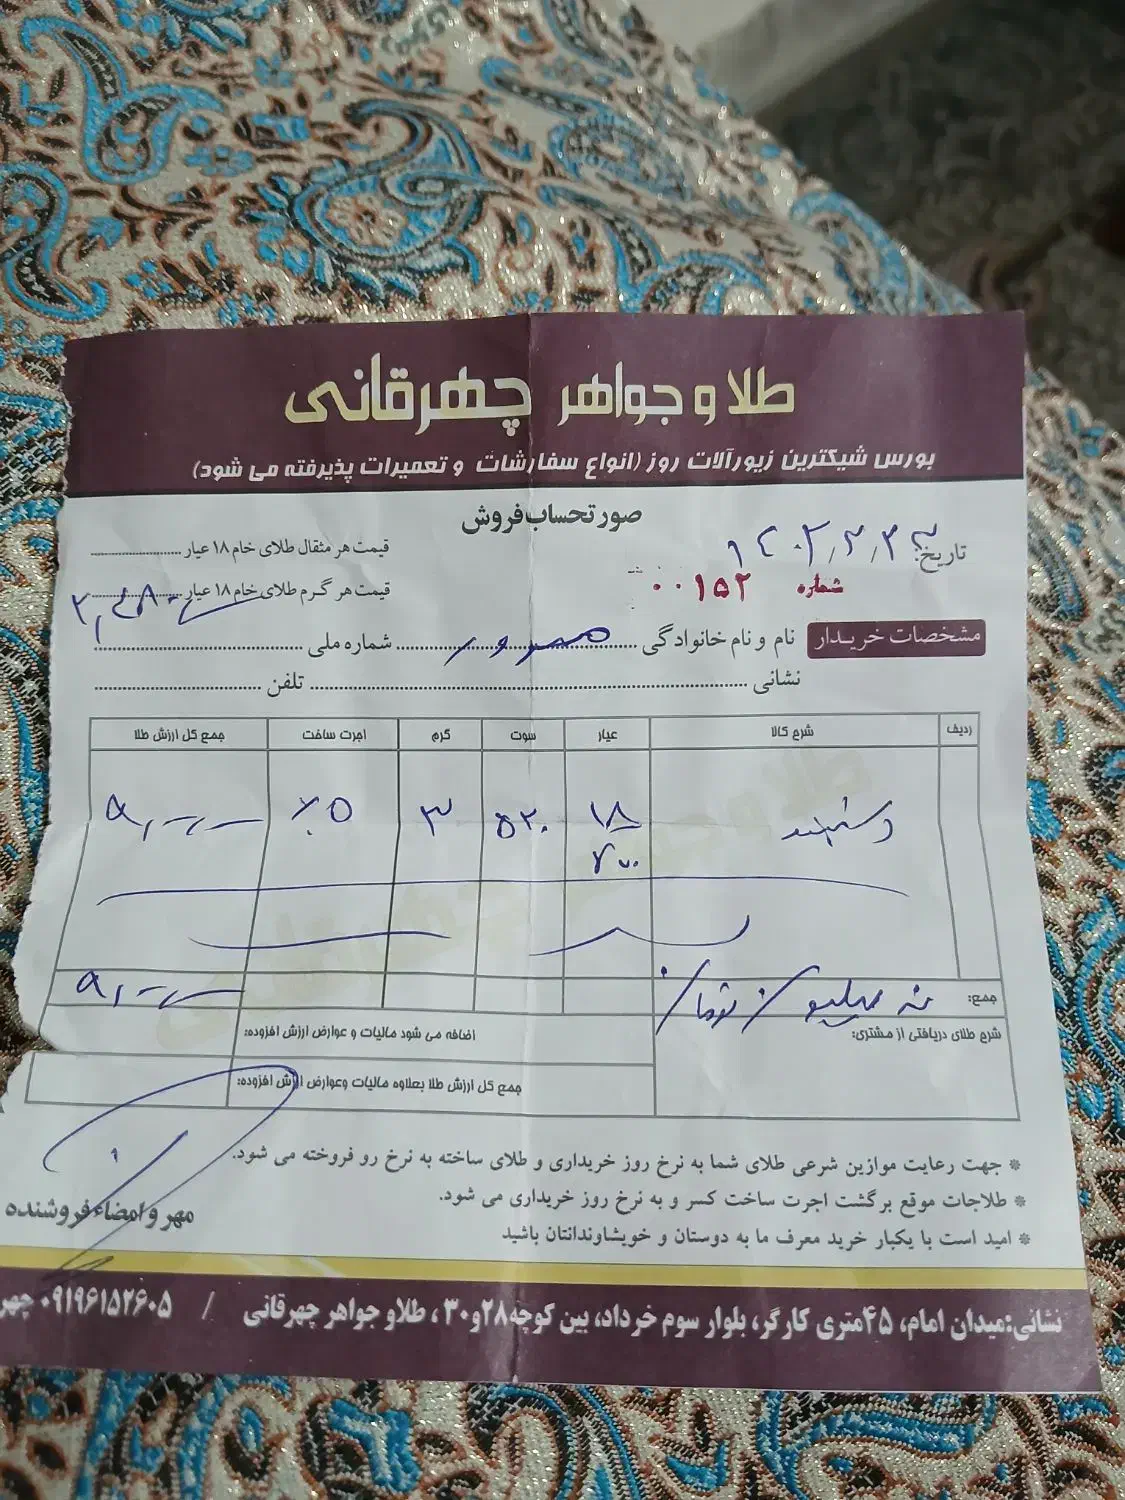 طلا و جواهر چهرقانی
بورس شیکترین زیورآلات روز (انواع سفارشات و تعمیرات پذیرفته می شود)
صورتحساب فروش
تاریخ:
قیمت هر مثقال طلای خام ۱۸ عیار
شماره ۰۰۱۵۲
قیمت هر گرم طلای خام ۱۸ عیار
مشخصات خریدار نام و نام خانوادگی شماره ملی
نشانی تلفن
ردیف شرح کالا عیار سوت گرم اجرت ساخت جمع کل ارزش طلا
دستبند ۱۸ ۵۲۰ ۳ ۵٪ ۹,۰۰۰,۰۰۰
جمع: نه میلیون تومان ۹,۰۰۰,۰۰۰
شرح طلای دریافتی از مشتری: اضافه می شود مالیات و عوارض ارزش افزوده:
جمع کل ارزش طلا بعلاوه مالیات وعوارض ارزش افزوده:
* جهت رعایت موازین شرعی طلای شما به نرخ روز خریداری و طلای ساخته به نرخ رو فروخته می شود.
* طلاجات موقع برگشت اجرت ساخت کسر و به نرخ روز خریداری می شود.
مهر و امضاء فروشنده
* امید است با یکبار خرید معرف ما به دوستان و خویشاوندانتان باشید
نشانی:میدان امام، ۴۵متری کارگر، بلوار سوم خرداد، بین کوچه۲۸و۳۰، طلاو جواهر چهرقانی / ۰۹۱۹۶۱۵۲۶۰۵